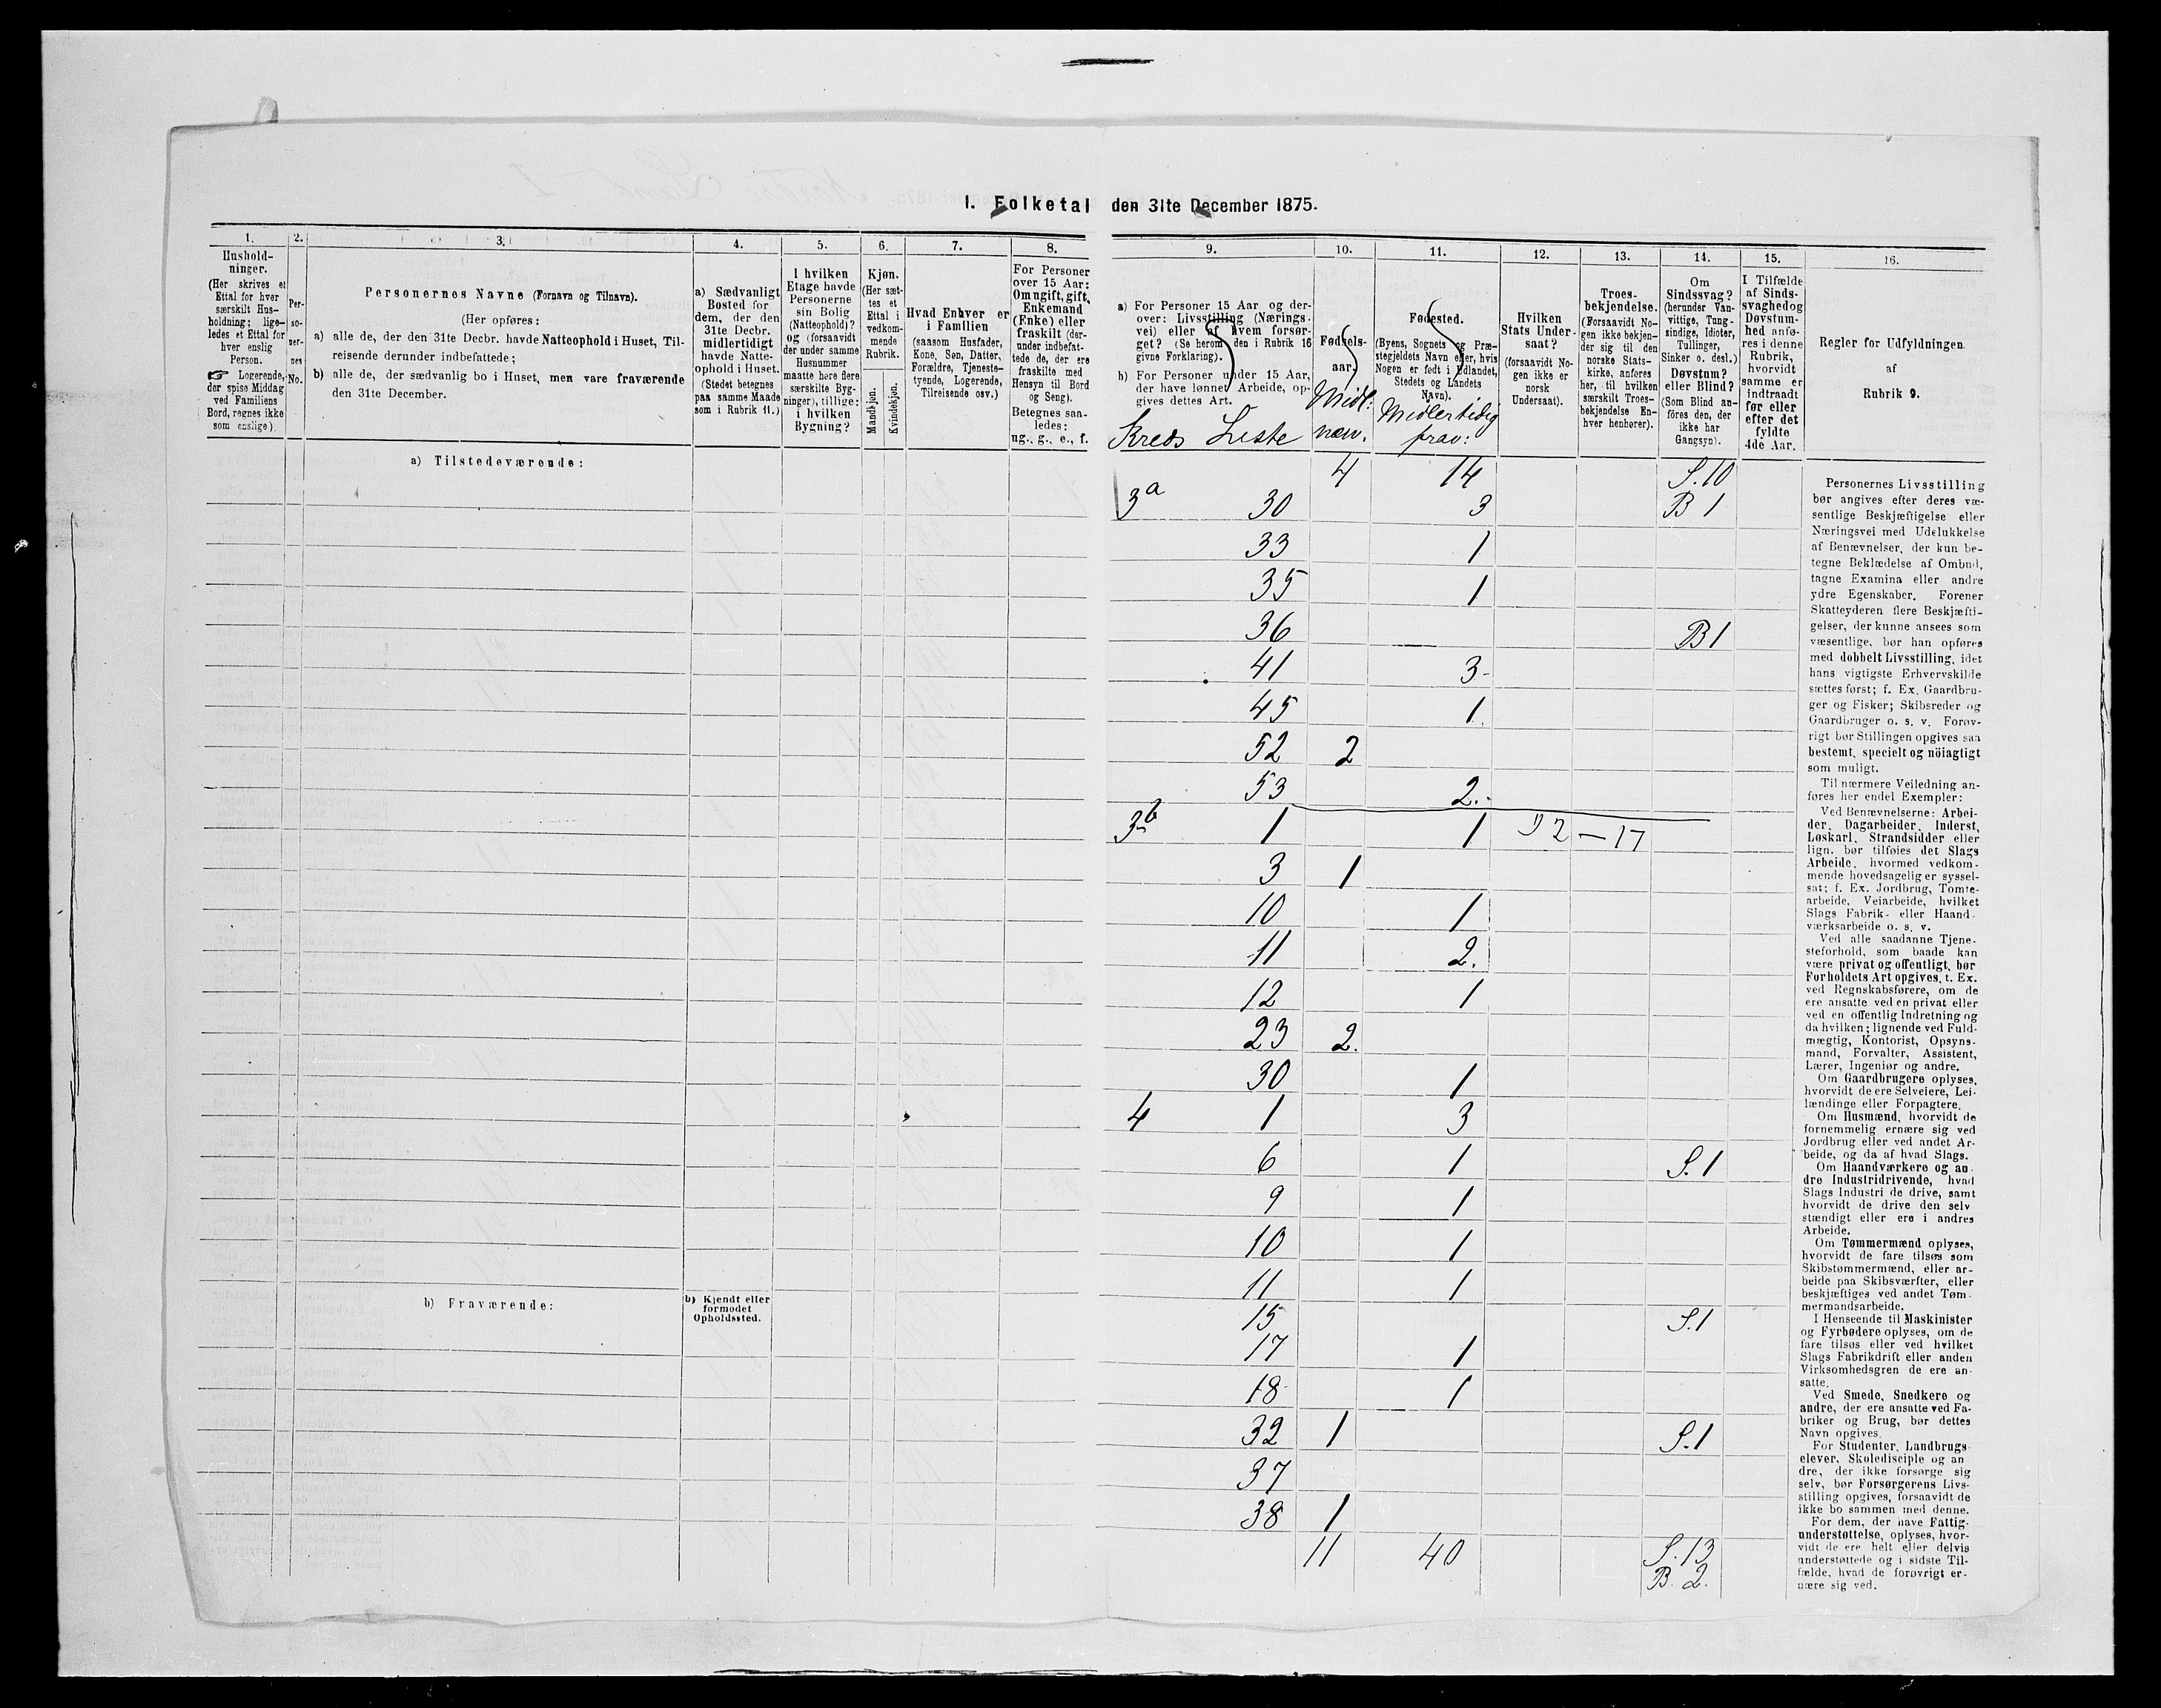 I. Folketal den 31te December 1875.
1.
Hushold-
ninger.
(Her skrives et
Ettal for hver
særskilt Hus-
holdning; lige-
ledes et Ettal for
hver enslig
Person.
☞ Logerende,
der spise Middag
ved Familiens
Bord, regnes ikke
som enslige).
2.
Per-
so-
ner-
nes
No.
3.
Personernes Navne (Fornavn og Tilnavn).
(Her opføres:
a) alle de, der den 31te Decbr. havde Natteophold i Huset, Til-
reisende derunder indbefattede;
b) alle de, der sædvanlig bo i Huset, men vare fraværende
den 31te December.
4.
a) Sædvanligt
Bosted for
dem, der den
31te Decbr.
midlertidigt
havde Natte-
ophold i Huset.
(Stedet betegnes
paa samme Maade
som i Rubrik 11.)
5.
I hvilken
Etage havde
Personerne
sin Bolig
(Natteophold)?
og (forsaavidt
der under samme
Husnummer
maatte høre flere
særskilte Byg-
ninger), tillige:
i hvilken
Bygning?
6.
Kjøn.
(Her sæt-
tes et
Ettal i
vedkom-
mende
Rubrik.
Mandkjøn.
Kvindekjøn.
7.
Hvad Enhver er
i Familien
(saasom Husfader,
Kone, Søn, Datter,
Forældre, Tjeneste-
tyende, Logerende,
Tilreisende osv.)
8.
For Personer
over 15 Aar:
Om ugift, gift,
Enkemand
(Enke) eller
fraskilt (der-
under indbefat-
tede de, der ere
fraskilte med
Hensyn til Bord
og Seng).
Betegnes saa-
ledes:
ug., g., e., f.
9.
a) For Personer 15 Aar og der-
over: Livsstilling (Nærings-
vei) eller af hvem forsør-
get? (Se herom den i Rubrik 16
givne Forklaring).
b) For Personer under 15 Aar,
der have lønnet Arbeide, op-
gives dettes Art.
Kreds Liste
10.
Fødsels-
aar.
Midl:
nærv.
11.
Fødested.
(Byens, Sognets og Præ-
stegjeldets Navn eller, hvis
Nogen er født i Udlandet,
Stedets og Landets
Navn).
Midlertidig
frav:
12.
Hvilken
Stats Under-
saat?
(forsaavidt No-
gen ikke er
norsk
Undersaat).
13.
Troes-
bekjendelse.
(Forsaavidt No-
gen ikke bekjen-
der sig til den
norske Stats-
kirke, anføres
her, til hvilken
særskilt Troes-
bekjendelse En-
hver henhører).
14.
Om
Sindssvag?
(herunder Van-
vittige, Tung-
sindige, Idioter,
Tullinger,
Sinker o. desl.)
Døvstum?
eller Blind?
(Som Blind an-
føres den, der
ikke har
Gangsyn).
15.
I Tilfælde
af Sinds-
svaghed og
Døvstum-
hed anfø-
res i denne
Rubrik,
hvorvidt
samme er
indtraadt
før eller
efter det
fyldte
4de Aar.
16.
Regler for Udfyldningen
af
Rubrik 9.
a) Tilstedeværende:
4 14 S. 10
3a 30 3 B 1
33 1
35 1
36 B 1
41 3
45 1
52 2
53 2
3b 1 1 — 17
3 1
10 1
11 2.
12 1
23 2.
30 1
4 1 3
6 1 S. 1
9 1
10 1
11 1
15 S. 1
17 1
18 1
32 1 S. 1
37
38 1
11 40 S. 13
B. 2.
b) Fraværende:
b) Kjendt eller
formodet
Opholdssted.
Personernes Livsstilling
bør angives efter deres væ-
sentlige Beskjæftigelse eller
Næringsvei med Udelukkelse
af Benævnelser, der kun be-
tegne Beklædelse af Ombud,
tagne Examina eller andre
ydre Egenskaber. Forener
Skatteyderen flere Beskjæfti-
gelser, der kunne ansees som
væsentlige, bør han opføres
med dobbelt Livsstilling, idet
hans vigtigste Erhvervskilde
sættes først; f. Ex. Gaardbru-
ger og Fisker; Skibsreder og
Gaardbruger o. s. v. Forøv-
rigt bør Stillingen opgives saa
bestemt, specielt og nöiagtigt
som muligt.
Til nærmere Veiledning an-
føres her endel Exempler:
Ved Benævnelserne: Arbei-
der, Dagarbeider, Inderst,
Løskarl, Strandsidder eller
lign. bør tilføies det Slags
Arbeide, hvormed vedkom-
mende hovedsagelig er syssel-
sat; f. Ex. Jordbrug, Tomte-
arbeide, Veiarbeide, hvilket
Slags Fabrik- eller Haand-
værksarbeide o. s. v.
Ved alle saadanne Tjene-
steforhold, som baade kan
være privat og offentligt, bør
Forholdets Art opgives, t. Ex.
ved Regnskabsførere, om de
ere ansatte ved en privat eller
ved en offentlig Indretning og
da hvilken; lignende ved Fuld-
mægtig, Kontorist, Opsyns-
mand, Forvalter, Assistent,
Lærer, Ingeniør og andre.
Om Gaardbrugere oplyses,
hvorvidt de ere Selveiere, Lei-
lændinge eller Forpagtere.
Om Husmænd, hvorvidt de
fornemmelig ernære sig ved
Jordbrug eller ved andet Ar-
beide, og da af hvad Slags.
Om Haandværkere og an-
dre Industridrivende, hvad
Slags Industri de drive, samt
hvorvidt de drive den selv
stændigt eller ere i andres
Arbeide.
Om Tømmermænd oplyses,
hvorvidt de fare tilsøs som
Skibstømmermænd, eller ar-
beide paa Skibsværfter, eller
beskjæftiges ved andet Tøm-
mermandsarbeide.
I Henseende til Maskinister
og Fyrbødere oplyses, om de
fare tilsøs eller ved hvilket
Slags Fabrikdrift eller anden
Virksomhedsgren de ere an-
satte.
Ved Smede, Snedkere og
andre, der ere ansatte ved Fa-
briker og Brug, bør dettes
Navn opgives.
For Studenter, Landbrugs-
elever, Skoledisciple og an
dre, der ikke forsørge sig
selv, bør Forsørgerens Livs-
stilling opgives, forsaavidt de
ikke bo sammen med denne.
For dem, der have Fattig-
understøttelse, oplyses, hvor-
vidt de ere helt eller delvis
understøttede og i sidste Til-
fælde, hvad de forøvrigt er-
nære sig ved.